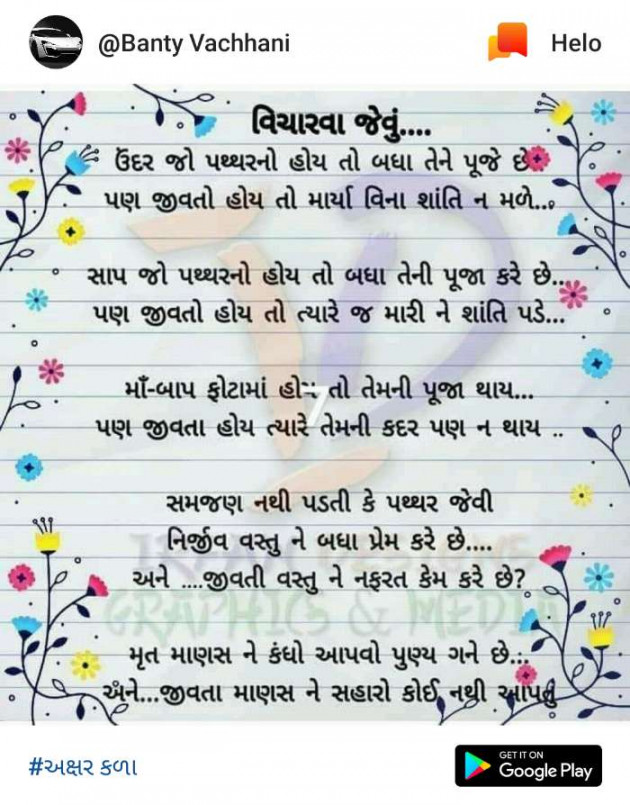 @Banty Vachhani
Helo
વિચારવા જેવું....
ઉંદર જો પથ્થરનો હોય તો બધા તેને પૂજે છે
પણ જીવતો હોય તો માર્યા વિના શાંતિ ન મળે...
સાપ જો પથ્થરનો હોય તો બધા તેની પૂજા કરે છે..
પણ જીવતો હોય તો ત્યારે જ મારી ને શાંતિ પડે...
માઁ-બાપ ફોટામાં હોય તો તેમની પૂજા થાય...
પણ જીવતા હોય ત્યારે તેમની કદર પણ ન થાય ..
સમજણ નથી પડતી કે પથ્થર જેવી
નિર્જીવ વસ્તુ ને બધા પ્રેમ કરે છે....
અને ....જીવતી વસ્તુ ને નફરત કેમ કરે છે?
GRAPHICS & MEDIA
મૃત માણસ ને કંધો આપવો પુણ્ય ગને છે...
અને...જીવતા માણસ ને સહારો કોઈ નથી આપતું
#અક્ષર કળા
GET IT ON
Google Play